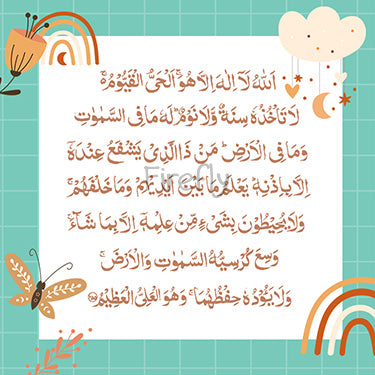 اَللّٰهُ لَآ اِلٰهَ اِلَّا هُوَۚ اَلْحَيُّ الْقَيُّوْمُ ەۚ
لَا تَأْخُذُهٗ سِنَةٌ وَّلَا نَوْمٌؕ لَهٗ مَا فِى السَّمٰوٰتِ
وَمَا فِى الْاَرْضِؕ مَنْ ذَا الَّذِيْ يَشْفَعُ عِنْدَهٗٓ
اِلَّا بِاِذْنِهٖؕ يَعْلَمُ مَا بَيْنَ اَيْدِيْهِمْ وَمَا خَلْفَهُمْۚ
Firefly
وَلَا يُحِيْطُوْنَ بِشَيْءٍ مِّنْ عِلْمِهٖٓ اِلَّا بِمَا شَآءَۚ
وَسِعَ كُرْسِيُّهُ السَّمٰوٰتِ وَالْاَرْضَۚ
وَلَا يَـُٔوْدُهٗ حِفْظُهُمَاۚ وَهُوَ الْعَلِيُّ الْعَظِيْمُ